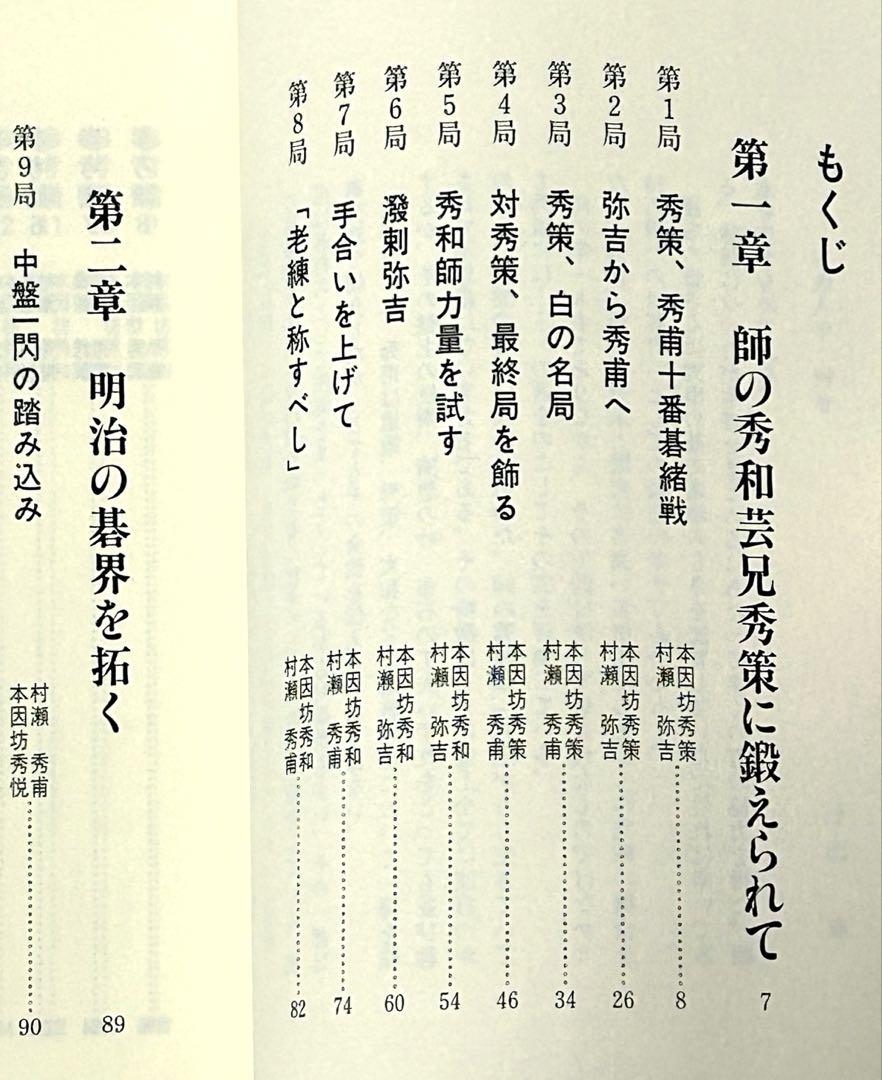 もくじ
第一章 師の秀和芸兄秀策に鍛えられて 7
第1局 秀策、秀甫十番碁緒戦 本因坊秀策 村瀬 弥吉 8
第2局 弥吉から秀甫へ 本因坊秀策 村瀬 弥吉 26
第3局 秀策、白の名局 本因坊秀策 村瀬 秀甫 34
第4局 対秀策、最終局を飾る 本因坊秀策 村瀬 秀甫 46
第5局 秀和師力量を試す 本因坊秀和 村瀬 弥吉 54
第6局 潑剌弥吉 本因坊秀和 村瀬 弥吉 60
第7局 手合いを上げて 本因坊秀和 村瀬 秀甫 74
第8局 「老練と称すべし」 本因坊秀和 村瀬 秀甫 82
第二章 明治の碁界を拓く 89
第9局 中盤一閃の踏み込み 村瀬 秀甫 本因坊秀悦 90